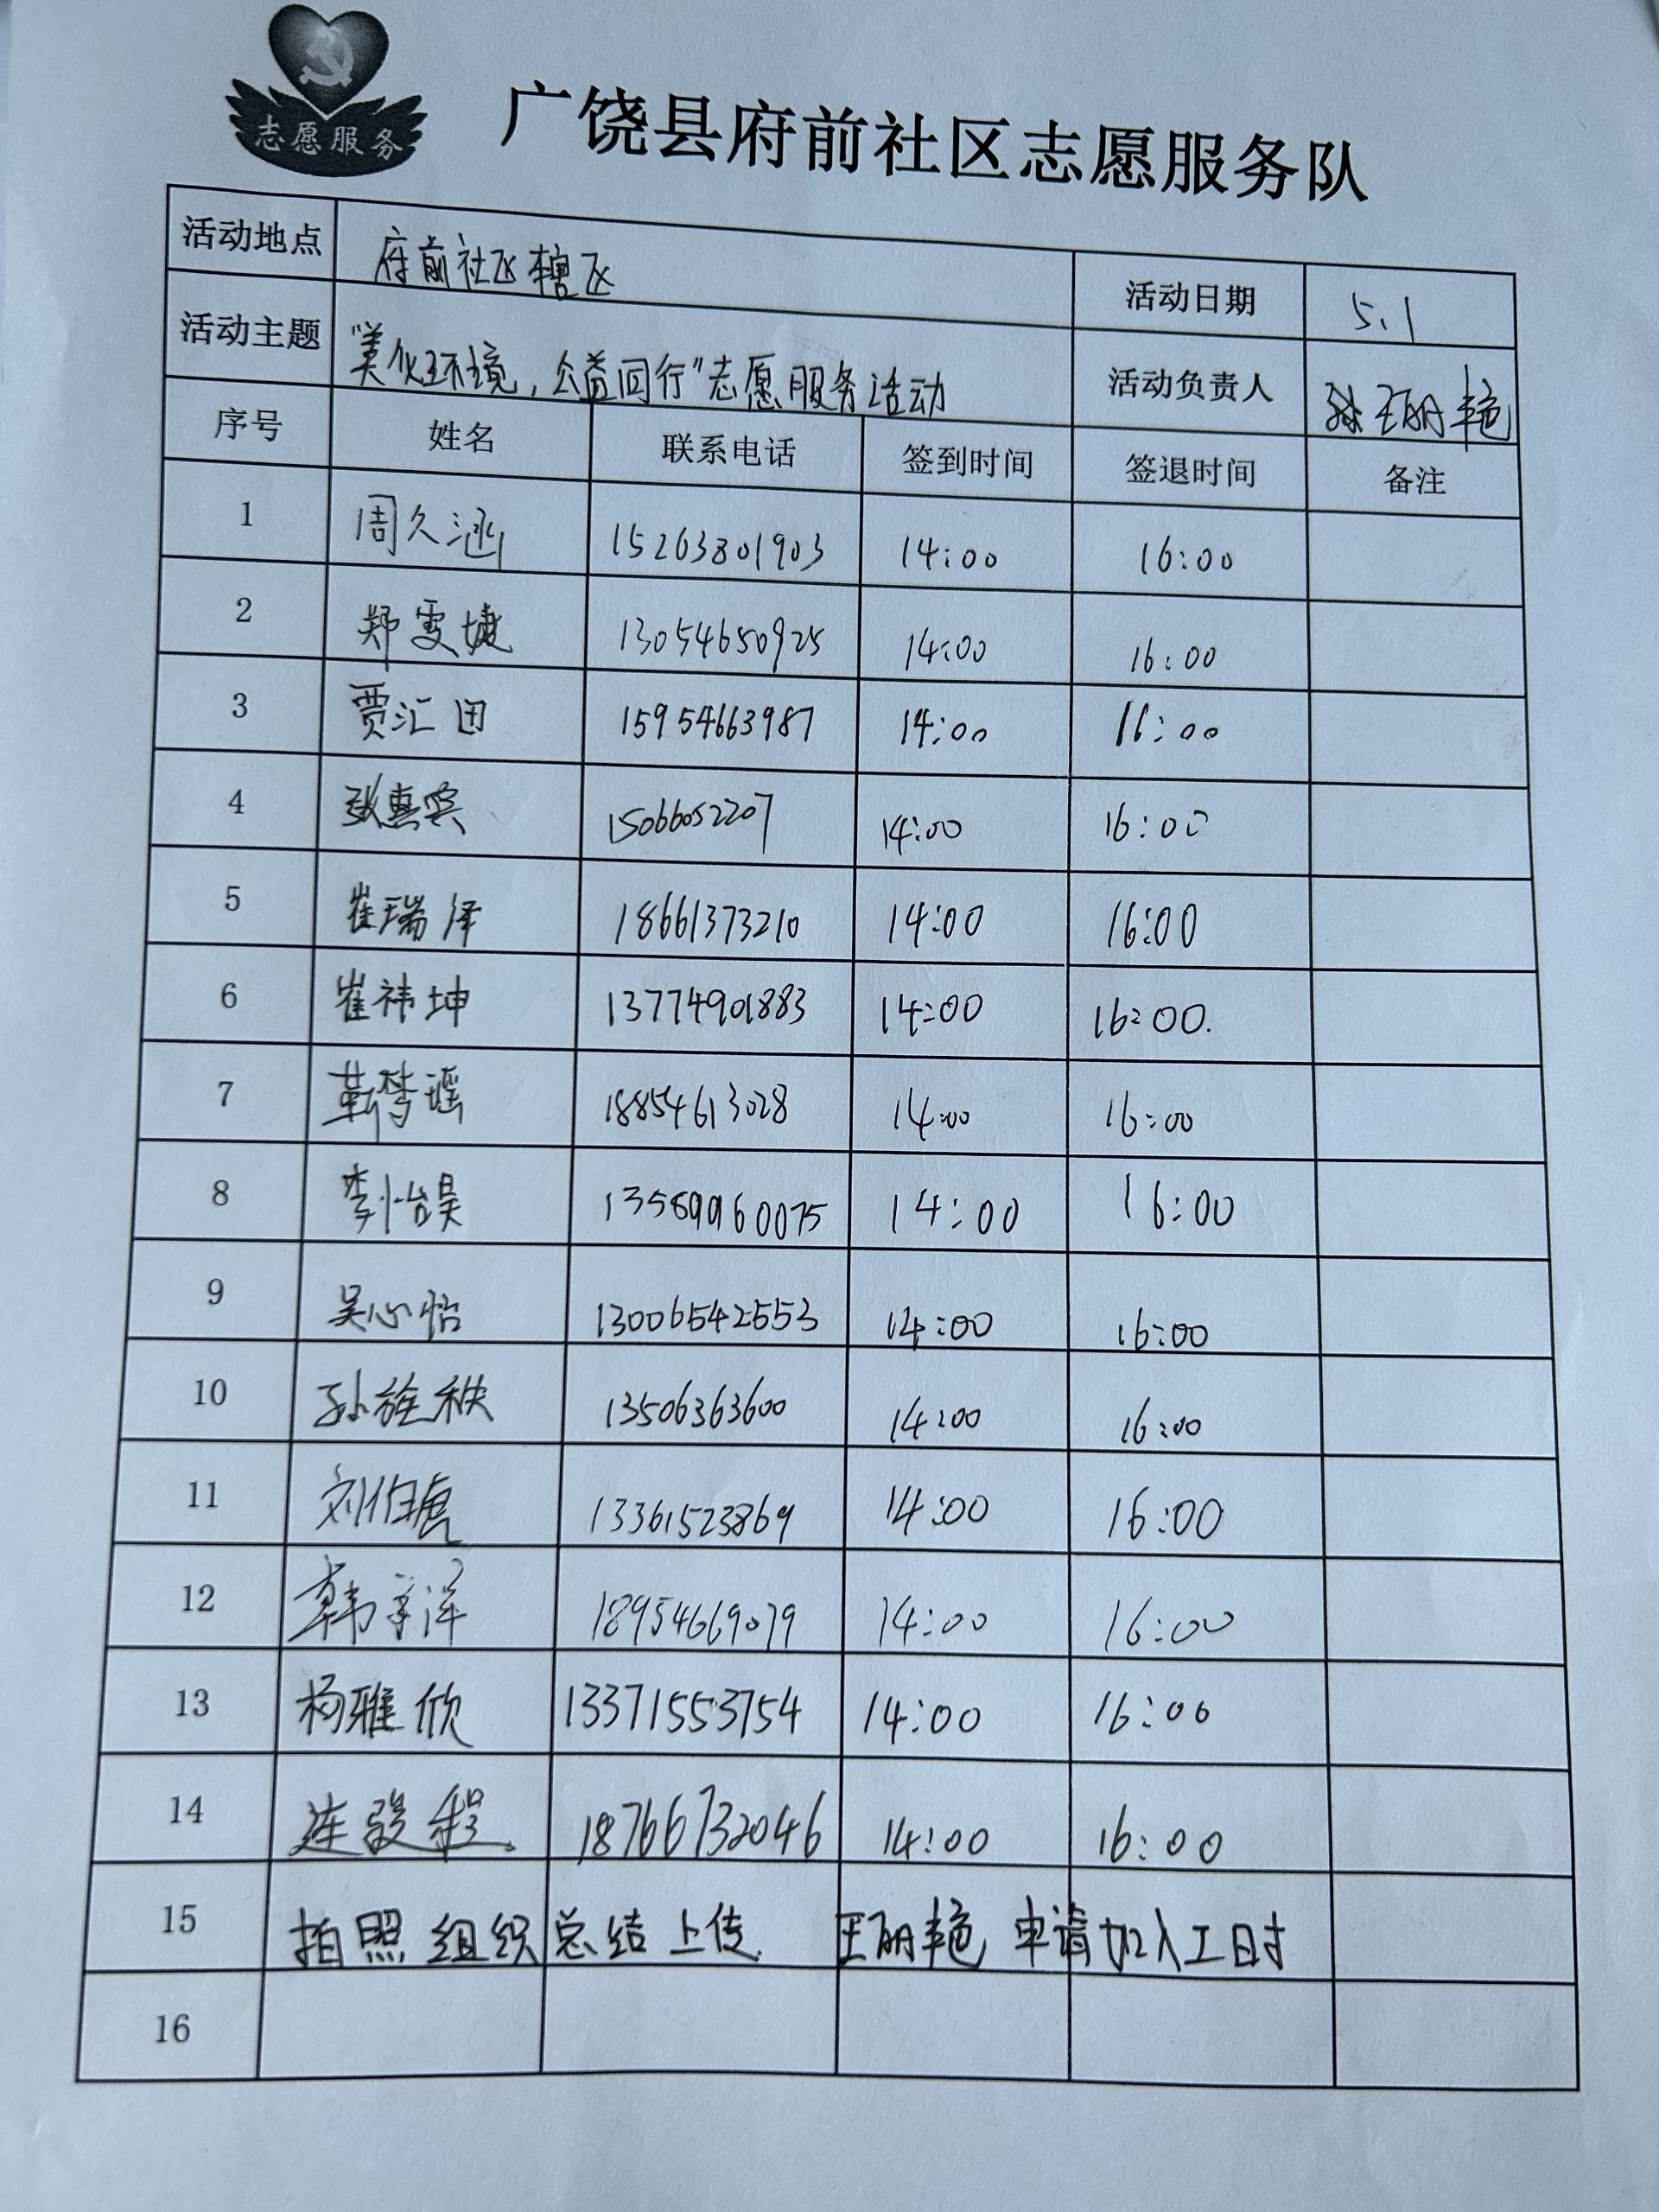 志愿服务
广饶县府前社区志愿服务队
活动地点 府前社区辖区 活动日期 5.1
活动主题 "美化环境，公益同行"志愿服务活动 活动负责人 王丽艳
序号 姓名 联系电话 签到时间 签退时间 备注
1 周久涵 15263801903 14:00 16:00
2 郑雯婕 13054650925 14:00 16:00
3 贾汇田 15954663987 14:00 16:00
4 张惠宾 15066052207 14:00 16:00
5 崔瑞泽 18661373210 14:00 16:00
6 崔祎坤 13774901883 14:00 16:00.
7 靳梦瑶 18854613028 14:00 16:00
8 李怡昊 13589960075 14:00 16:00
9 吴心怡 13006542553 14:00 16:00
10 孙旌秩 13506363600 14:00 16:00
11 刘伯 13361523869 14:00 16:00
12 韩 洋 18954669079 14:00 16:00
13 杨雅欣 13371553754 14:00 16:00
14 连 程 18766732046 14:00 16:00
15 拍照 组织总结上传. 王丽艳 申请加入工时
16